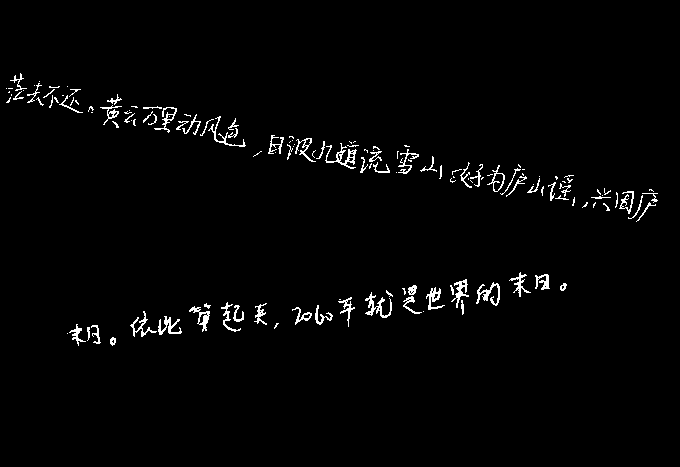 茫去不还。黄云万里动风色,白波九道流雪山。好为庐山谣,兴因庐
末日。依此算起来,2060年就是世界的末日。